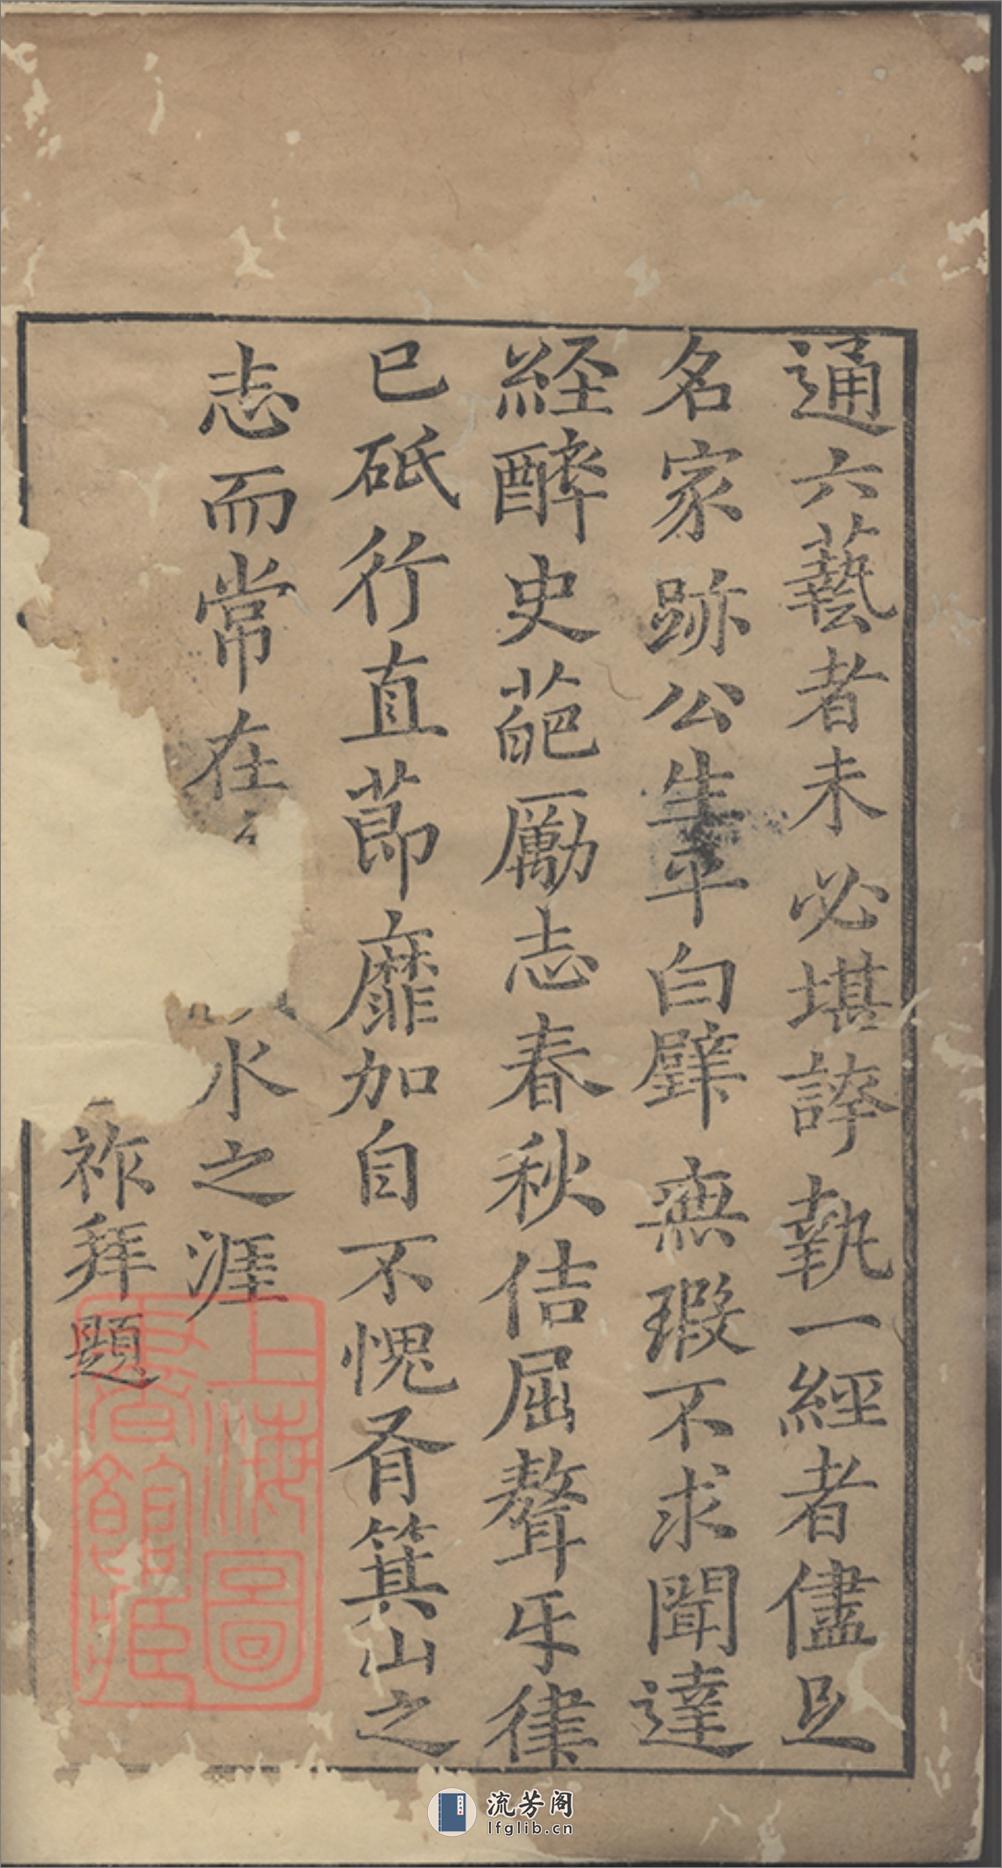 通六藝者未必堪誇執一經者儘足
名家跡公生平白璧無瑕不求聞達
経醉史葩厲志春秋佶屈聱牙律
已砥行直節靡加自不愧有箕山之
志而常在水之涯
祚拜題
上海圖書館藏
流芳阁
lfglib.cn